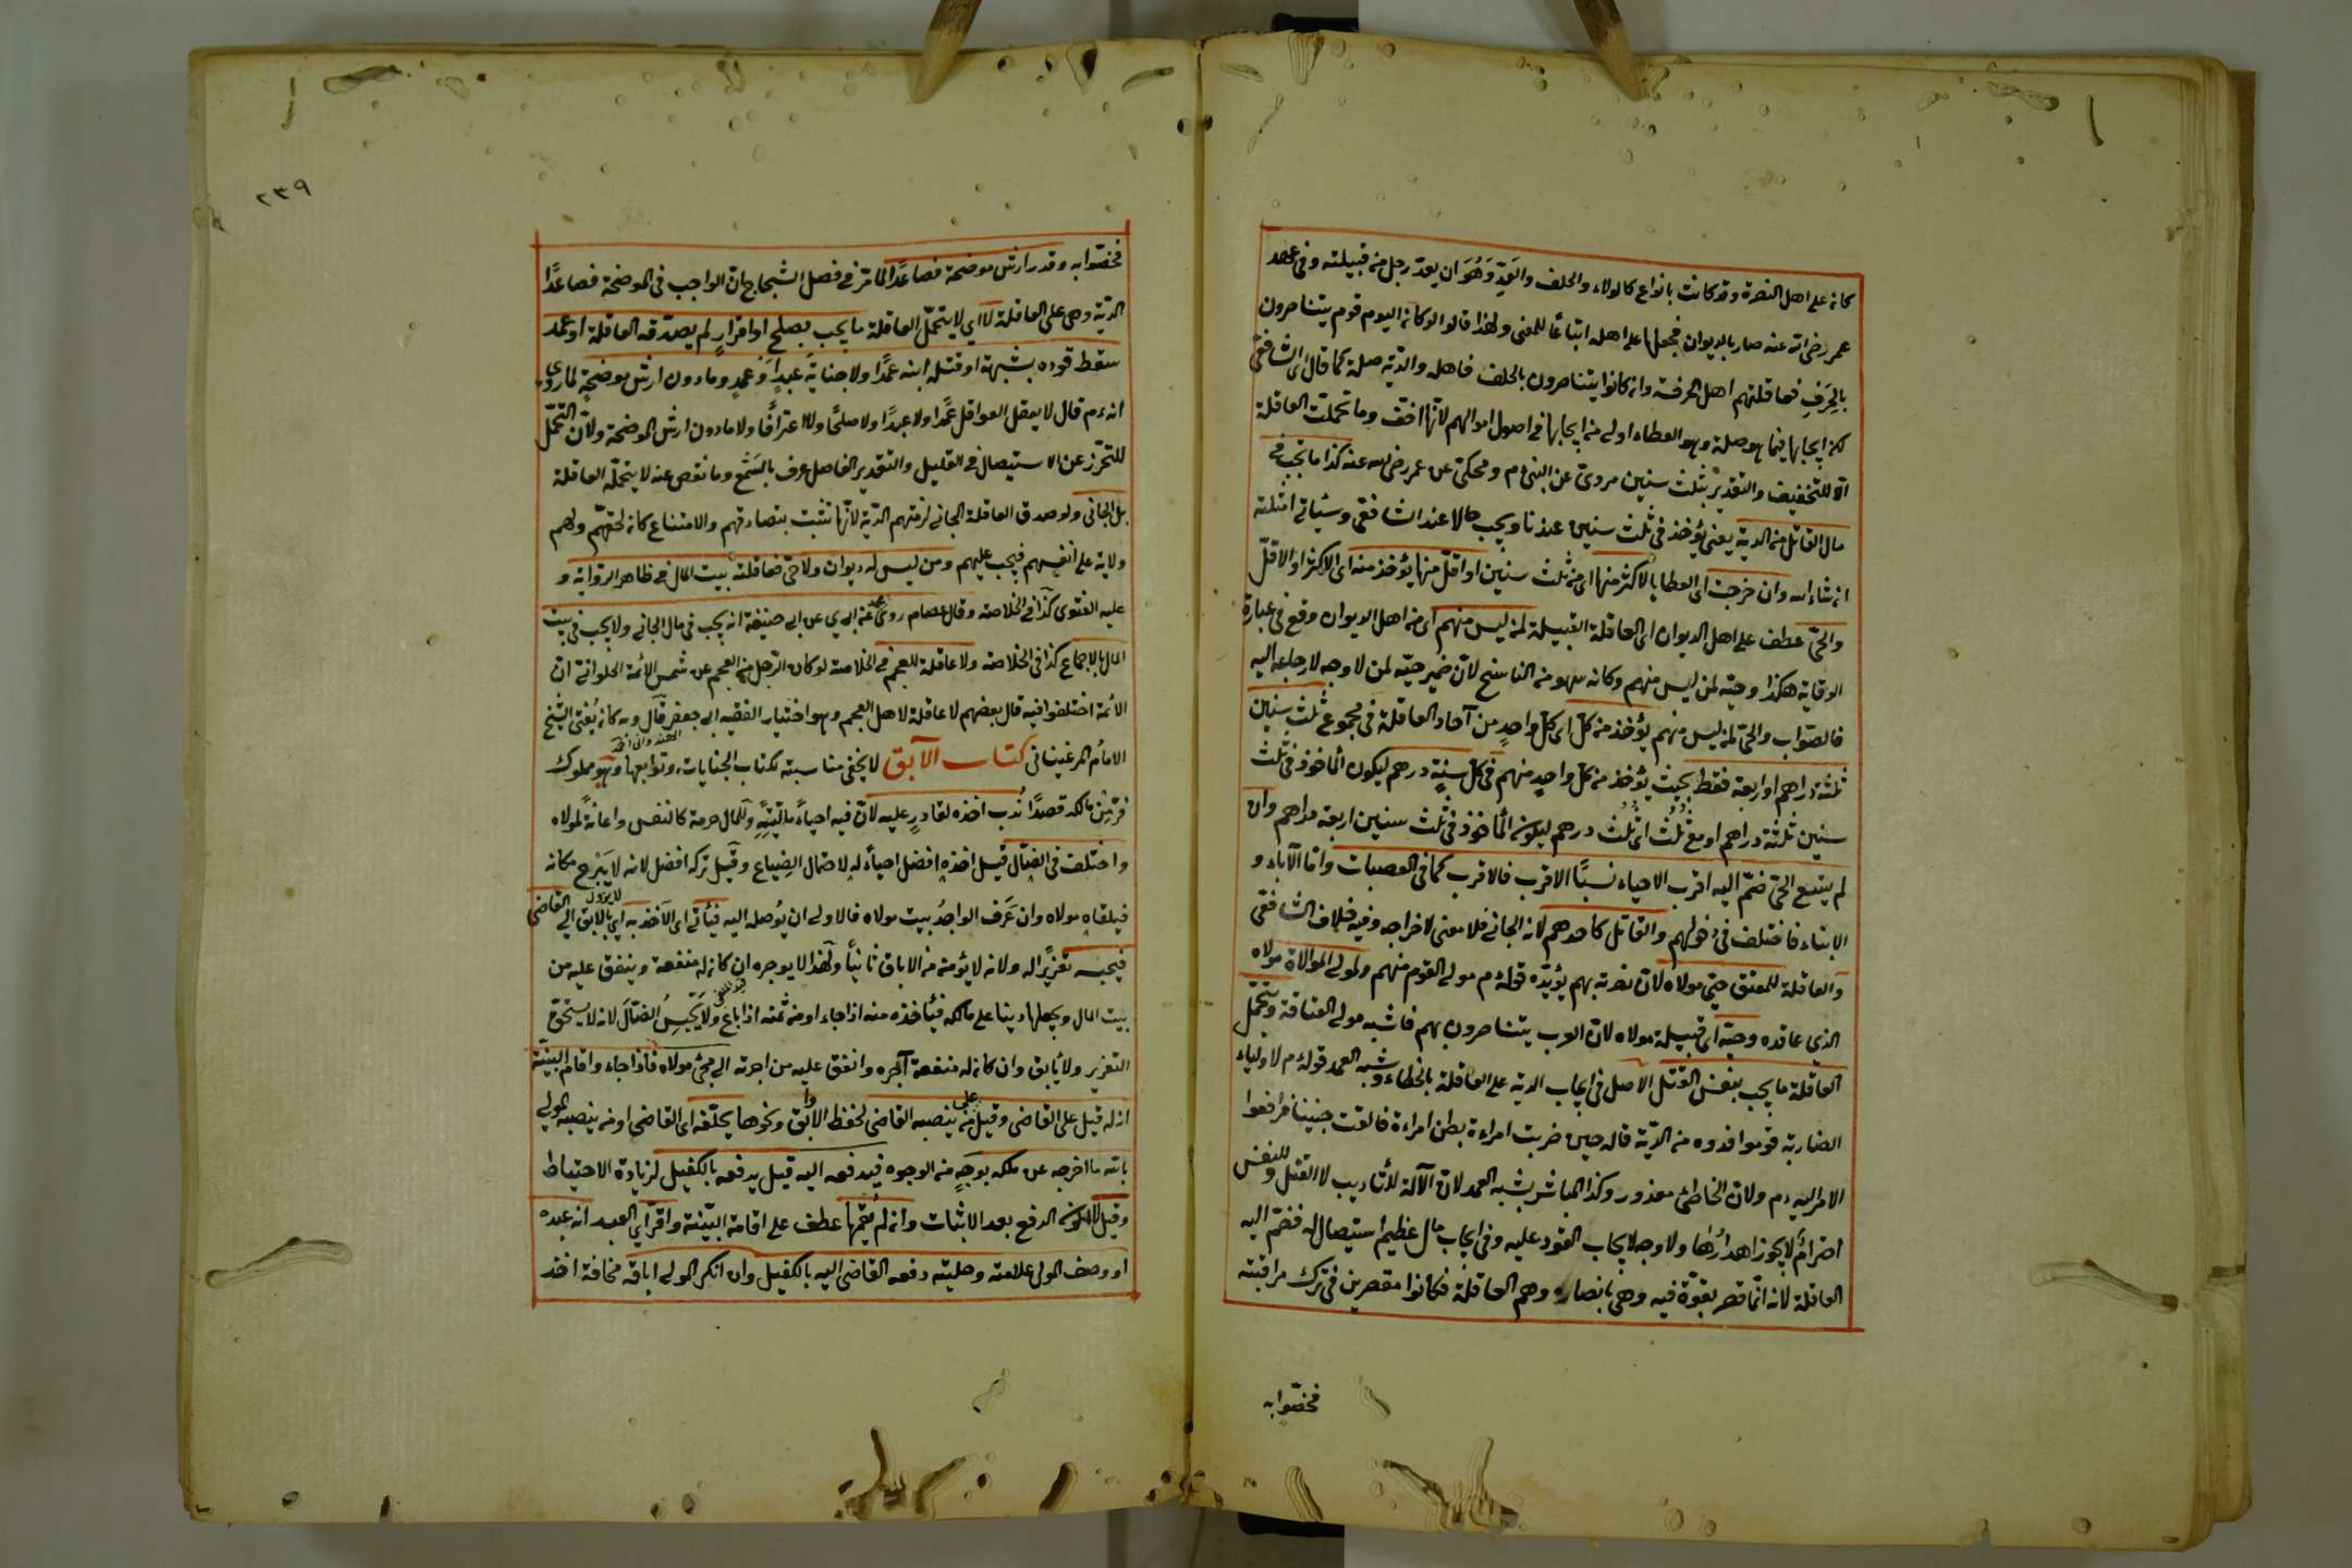 كانه على اهل النصرة وقد كانت بانواع كالولاء والحلف والعَدِّ وَهُوَ ان يعدّ رجل من قبيلته وفى عهد
عمر رضى الله عنه صار بالديوان فجعلها على اهله اتباعًا للمعنى ولهذا قالوا لو كانه اليوم قوم يتناصرون
بالحِرَفِ فعاقلتهم اهل الحرفة وانه كانوا يتناصرون بالحلف فاهله والدّية صلة كما قال الشافعى
لكنه ايجابها فيما هو صلة وهو العطاء اولى من ايجابها فى اصول اموالهم لانّها اخفّ وما تحمّلت العاقلة
الّا للتخفيف والتقدير بثلث سنين مروىّ عن النبى ءم ومحكىّ عن عمر رضى الله عنه كذا ما تجب فى
مال القاتل من الدية يعنى يؤخذ فى ثلث سنين عندنا ويجب حالا عند الشافعى وسيأتى امثلته
انه شاء الله وان خرجت اى العطايا لاكثر منها اى من ثلث سنين او اقلّ منها يؤخذ منه اى الاكثر او الاقلّ
والحىّ عطف على اهل الديوان اى العاقلة القبيلة لمن ليس منهم اى من اهل الديوان وقع فى عبارة
الوقاية هكذا وحيّه لمن ليس منهم وكانه سهو من الناسخ لانّ ضمير حيّه لمن لا وجه لارجاعه اليه
فالصّواب والحىّ لمن ليس منهم يؤخذ من كلّ اى كلّ واحدٍ من آحاد العاقلة فى مجموع ثلث سنين
ثلثة دراهم او اربعة فقط بحيث يؤخذ من كل واحدٍ منهم فى كلّ سنةٍ درهم ليكون المأخوذ فى ثلث
سنين ثلثة دراهم او مع ثُلُث اى ثُلُث درهم ليكونه المأخوذ فى ثلث سنين اربعة دراهم وان
لم يتسع الحىّ ضمّ اليه اقرب الاحياء نسبًا الاقرب فالاقرب كما فى العصبات وامّا الآباء و
الابناء فاختلف فى دخولهم والقاتل كاحدهم لانه الجانى فلا معنى لاخراجه وفيه خلاف الشافعى
والعاقلة للمعتق حىّ مولاه لانّ نصرته بهم يؤيّده قوله ءم مولى القوم منهم ولمولى الموالاة مولاه
الذى عاقده وحيّه اى قبيلة مولاه لانّ العرب يتناصرون بهم فاشبه مولى العتاقة وتتحمّل
العاقلة ما يجب بنفس القتل الاصل فى ايجاب الدية على العاقلة بالخطاء وشبه العمد قوله ءم لاولياء
الضاربة قوموا فدوه من الدّية قاله حين ضربت امراءة بطن امراءة فالقت جنينا فرافعوا
الامر اليه ءم ولان الخاطئ معذور وكذا المباشر بشبه العمد لانّ الآلة للتأديب لا القتل وللنفس
احترامٌ لا يجوز اهدارُها ولا وجه لايجاب القود عليه وفى ايجاب مال عظيم استيصاله فضمّ اليه
العاقلة لانه انّما قصر بقوّة فيه وهى بانصاره وهم العاقلة فكانوا مقصرين فى ترك مراقبته
فخصّوا به
٢٣٩
فخصّوا به وقدر ارش موضحة فصاعدًا لما مرّ فى فصل الشجاج انّ الواجب فى الموضحة فصاعدًا
الدّية وهى على العاقلة لا اى لا يتحمّل العاقلة ما يجب بصلح او اقرارٍ لم يصدّقه العاقلة او عمد
سقط قوده بشبهة او قتله ابنه عمدًا ولا جنايةَ عبدٍ او عمدٍ وما دون ارش موضحةٍ لما روى
انه ءم قال لا يعقل العواقل عمدًا ولا عبدًا ولا صلحًا ولا اعترافًا ولا ما دون ارش الموضحة ولانّ التحمّل
للتحرّز عن الاستيصال فى القليل والتقدير الفاصل عرف بالسّمع وما نقص عنه لا يتحمّله العاقلة
بل الجانى ولو صدق العاقلة الجانى لزمتهم الدّية لانّها تثبت بتصادقهم والامتناع كانه لحقّهم ولهم
ولاية على انفسهم فيجب عليهم ومن ليس له ديوان ولا حىّ فعاقلته بيت المال فى ظاهر الرّواية و
عليه الفتوى كذا فى الخلاصة وقال عصام روى محمد عن ابى حنيفة انه يجب فى مال الجانى ولا يجب فى بيت
المال بالاجماع كذا فى الخلاصة ولا عاقلة للعجم فى الخلاصة لو كان الرّجل من العجم عن شمس الائمة الحلوانى انّ
الائمة اختلفوا فيه قال بعضهم لا عاقلة لاهل العجم وهو اختيار الفقيه ابى جعفر قال وبه كانه يُفتى الشيخ
الامام المرغينانى كتاب الآبق لا يخفى مناسبته لكتاب الجنايات وتوابعها وهو مملوك
فرّ من مالكه قصدًا نُدب اخذه لقادرٍ عليه لانّ فيه احياءً لماليّتهِ وللمال حرمة كالنفس واعانةً لمولاه
واختلف فى الضالّ قيل اخذه افضل احياءً له لاحتمال الضياع وقيل تركه افضل لانه لا يَبْرح مكانه
لا يزول
فيلقاه مولاه وان عَرَف الواجدُ بيت مولاه فالاولى ان يُوصله اليه فيأتى اى الآخذ به اى بالآبق الى القاضى
فيحبسه تعزيرًا له ولانه لا يؤمنه من الاباق ثانيًا ولهذا لا يوجره ان كانه له منفعة وينفق عليه من
بيت المال ويجعلها دينا على مالكه فيأخذه منه اذا جاء او من ثمنه اذا باع ولا يَحْبِسُ الضّالَ لانه لا يستحقّ
التعزير ولا يأبق وان كانه له منفعة آجره وانفق عليه من اجرته الى مجئ مولاه فاذا جاء واقام البيّنة
انه له قيل على القاضى وقيل على من ينصبه القاضى لحفظ الاباق ونحوها يحلّفه اى القاضى او من ينصبه المولى
بالله ما اخرجه عن ملكه بوجهٍ من الوجوه فيدفعه اليه قيل يدفعه بالكفيل لزيادة الاحتياط
وقيل لا لكونه الدفع بعد الاثبات وانه لم يُقمها عطف على اقامة البيّنة واقرّ اى العبد انه عبده
او وصف المولى علامته وحليته دفعه القاضى اليه بالكفيل وان انكر المولى اباقه مخافة اخذ